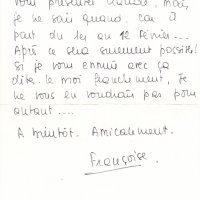 vous présenter Claude, mais,
je ne sais quand, car il
part du 1er au 12 février...
Après ce sera sûrement possible!
Si je vous ennuie avec ça
dites-le moi franchement, Je
ne vous en voudrais pas pour
autant....
A bientôt. Amicalement.
Françoise.